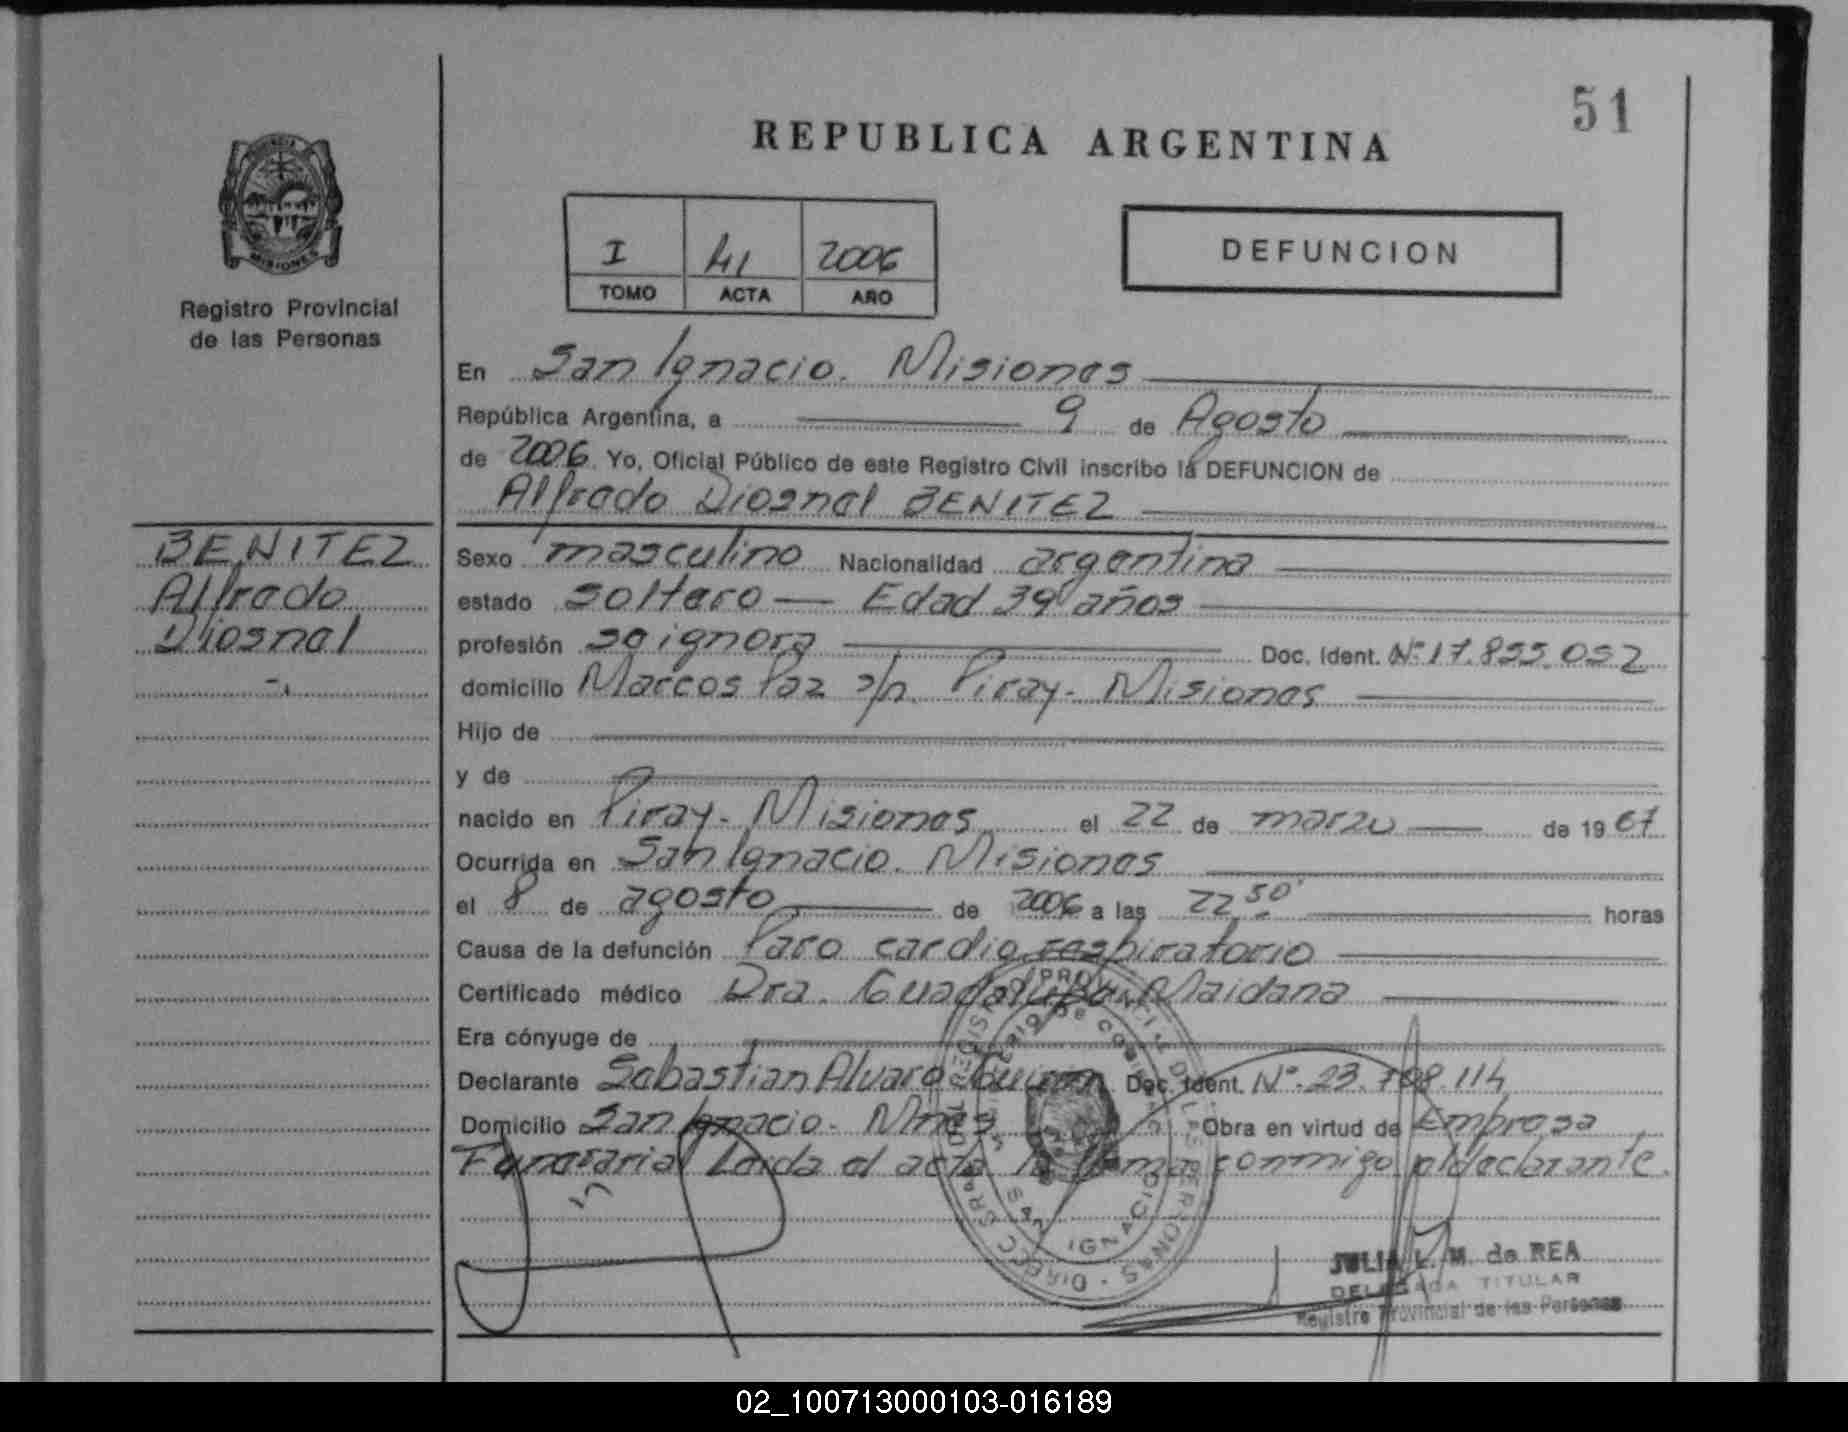 51
REPUBLICA ARGENTINA
I 41 2006
TOMO ACTA AÑO
DEFUNCION
PROVINCIA
MISIONES
Registro Provincial
de las Personas
En San Ignacio. Misiones
República Argentina, a 9 de Agosto
de 2006. Yo, Oficial Público de este Registro Civil inscribo la DEFUNCION de
Alfredo Diosnel BENITEZ
BENITEZ
Alfredo
Diosnel
Sexo masculino Nacionalidad argentina
estado soltero — Edad 39 años
profesión se ignora Doc. Ident. Nº 17.855.052
domicilio Marcos Paz s/n. Piray - Misiones
Hijo de
y de
nacido en Piray - Misiones el 22 de marzo de 1967
Ocurrida en San Ignacio. Misiones
el 8 de agosto de 2006 a las 22,50' horas
Causa de la defunción Paro cardio respiratorio
Certificado médico Dra. Guadalupe Maidana
Era cónyuge de
Declarante Sebastian Alvaro Doc. Ident. Nº 23.708.114
Domicilio San Ignacio - Mnes Obra en virtud de Empresa
Funeraria Leida el acta la firma conmigo el declarante.
SAN IGNACIO
JULIA L. M. de REA
DELEGADA TITULAR
Registro Provincial de las Personas
02_100713000103-016189